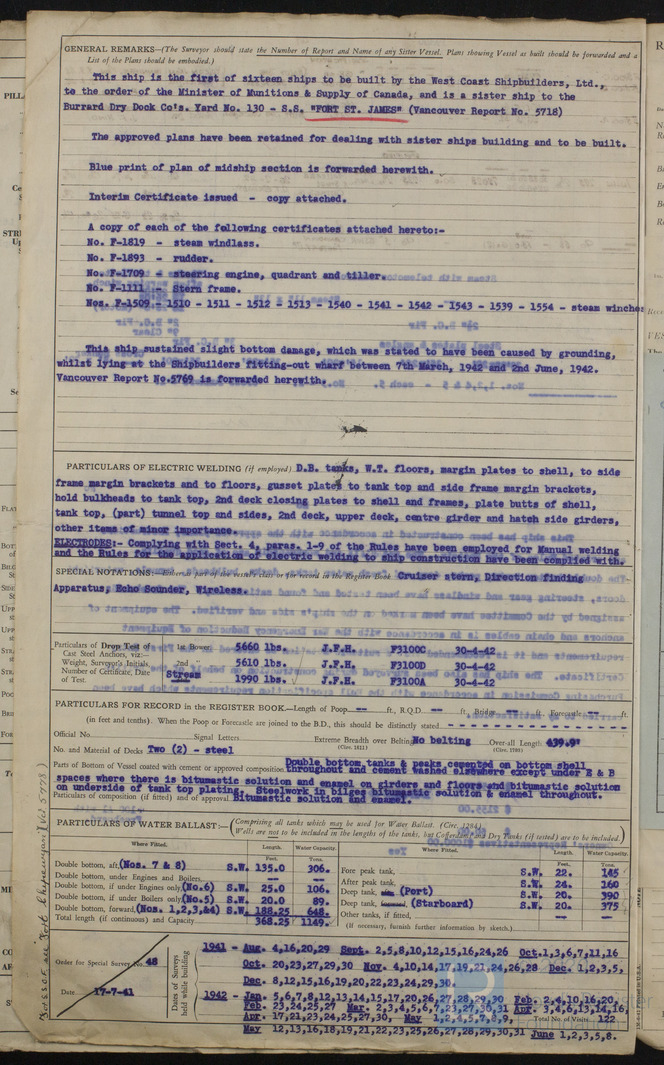 GENERAL REMARKS—(The Surveyor should state the Number of Report and Name of any Sister Vessel. Plans showing Vessel as built should be forwarded and a
List of the Plans should be embodied.)
This ship is the first of sixteen ships to be built by the West Coast Shipbuilders, Ltd.,
to the order of the Minister of Munitions & Supply of Canada, and is a sister ship to the
Burrard Dry Dock Co's. Yard No. 130 - S.S. "FORT ST. JAMES" (Vancouver Report No. 5718)
The approved plans have been retained for dealing with sister ships building and to be built.
Blue print of plan of midship section is forwarded herewith.
Interim Certificate issued - copy attached.
A copy of each of the following certificates attached hereto:-
No. F-1819 - steam windlass.
No. F-1893 - rudder.
No. F-1709 - steering engine, quadrant and tiller.
No. F-1111 - Stern frame.
Nos. F-1509 - 1510 - 1511 - 1512 - 1513 - 1540 - 1541 - 1542 - 1543 - 1539 - 1554 - steam winches
This ship sustained slight bottom damage, which was stated to have been caused by grounding,
whilst lying at the Shipbuilders fitting-out wharf between 7th March, 1942 and 2nd June, 1942.
Vancouver Report No.5769 is forwarded herewith.
PARTICULARS OF ELECTRIC WELDING (if employed) D.B. tanks, W.T. floors, margin plates to shell, to side
frame margin brackets and to floors, gusset plates to tank top and side frame margin brackets,
hold bulkheads to tank top, 2nd deck closing plates to shell and frames, plate butts of shell,
tank top, (part) tunnel top and sides, 2nd deck, upper deck, centre girder and hatch side girders,
other items of minor importance.
ELECTRODES:- Complying with Sect. 4, paras. 1-9 of the Rules have been employed for Manual welding
and the Rules for the application of electric welding to ship construction have been complied with.
SPECIAL NOTATIONS:— Cruiser stern, Direction finding
Apparatus, Echo Sounder, Wireless.
Particulars of Drop Test of 1st Bower 5660 lbs. J.F.H. F3100C 30-4-42
Cast Steel Anchors, viz:—
Weight, Surveyor's Initials 2nd " 5610 lbs. J.F.H. F3100D 30-4-42
Number of Certificate, Date Stream
of Test. 1990 lbs. J.F.H. F3100A 30-4-42
PARTICULARS FOR RECORD in the REGISTER BOOK.—Length of Poop -- ft., R.Q.D. -- ft., Bridge -- ft., Forecastle -- ft.
(in feet and tenths). When the Poop or Forecastle are joined to the B.D., this should be distinctly stated
Official No. Signal Letters Extreme Breadth over Belting No belting Over-all Length 439.9'
(Circ. 1611)
No. and Material of Decks Two (2) - steel
Parts of Bottom of Vessel coated with cement or approved composition Double bottom tanks & peaks cemented on bottom shell
throughout and cement washed elsewhere except under E & B
spaces where there is bitumastic solution and enamel on girders and floors and bitumastic solution
on underside of tank top plating. Steelwork in bilges bitumastic solution & enamel throughout.
Particulars of composition (if fitted) and of approval Bitumastic solution and enamel.
PARTICULARS OF WATER BALLAST:— (Comprising all tanks which may be used for Water Ballast. (Circ. 1284).
Wells are not to be included in the lengths of the tanks, but Cofferdams and Dry Tanks (if tested) are to be included.)
Where Fitted. Length. Water Capacity. Where Fitted. Length. Water Capacity.
Feet. Tons. Feet. Tons.
Double bottom, aft, (Nos. 7 & 8) S.W. 135.0 306. Fore peak tank, S.W. 22. 145
Double bottom, under Engines and Boilers, -- -- After peak tank, S.W. 24. 160
Double bottom, if under Engines only, (No.6) S.W. 25.0 106. Deep tank, (Port) S.W. 20. 390
Double bottom, if under Boilers only, (No.5) S.W. 20.0 89. Deep tank, (Starboard) S.W. 20. 375
Double bottom, forward, (Nos. 1,2,3,&4) S.W. 188.25 648. Other tanks, if fitted, -- --
Total length (if continuous) and Capacity 368.25 1149. (If necessary, furnish further information by sketch.)
Order for Special Survey No. 48
Date 17-7-41
Dates of Surveys held while building
1941 - Aug. 4,16,20,29 Sept. 2,5,8,10,12,15,16,24,26 Oct.1,3,6,7,11,16
Oct. 20,23,27,29,30 Nov. 4,10,14,17,19,21,24,26,28 Dec. 1,2,3,5,
Dec. 8,12,15,16,19,20,22,23,24,29,30.
1942 - Jan. 5,6,7,8,12,13,14,15,17,20,26,27,28,29,30 Feb. 2,4,10,16,20,
Feb. 23,24,25,27 Mar. 2,3,4,5,6,7,23,27,30,31 Apr. 3,4,6,13,14,16,
Apr. 17,21,23,24,25,27,30, May 1,2,4,5,7,8,9, Total No. of Visits 122
May 12,13,16,18,19,21,22,23,25,26,27,28,29,30,31 June 1,2,3,5,8.